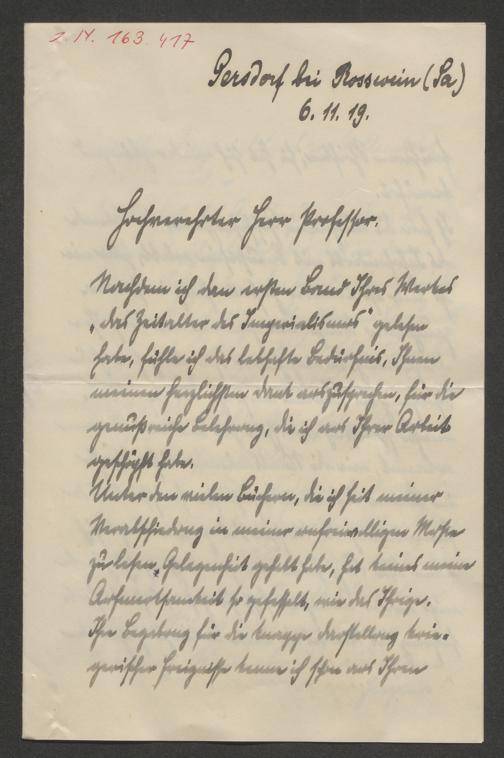 I N. 163.417
Gersdorf bei Rosswein (Sa)
6. 11. 19.
Hochverehrter Herr Professor.
Nachdem ich den ersten Band Ihres Werkes
„das Zeitalter des Imperialismus“ gelesen
habe, fühle ich das lebhafte Bedürfnis, Ihnen
meinen herzlichsten Dank auszusprechen, für die
genußreiche Belehrung, die ich aus Ihrer Arbeit
geschöpft habe.
Unter den vielen Büchern, die ich seit meiner
Verabschiedung in meiner unfreiwilligen Muße
zu lesen, Gelegenheit gehabt habe, hat keines meine
Aufmerksamkeit so gefesselt, wie das Ihrige.
Ihre Begabung für die knappe Darstellung krie-
gerischer Ereignisse kenne ich schon aus Ihren